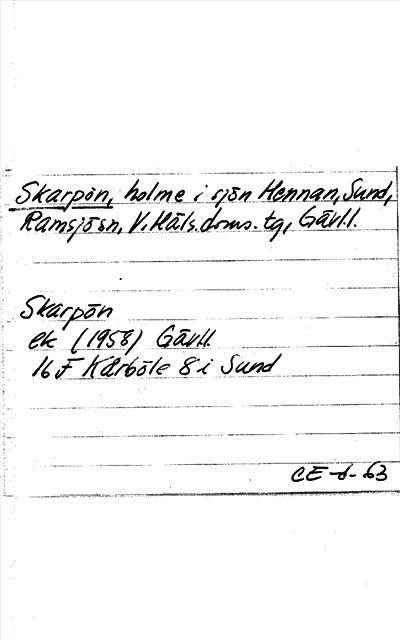 Skarpön, holme i sjön Hennan, Sund,
Ramsjösn, V. Häls. doms. tg, Gävl.l.
Skarpön
ek (1958) Gävl.l.
16 F Kårböle 8 i Sund
CE-6-63